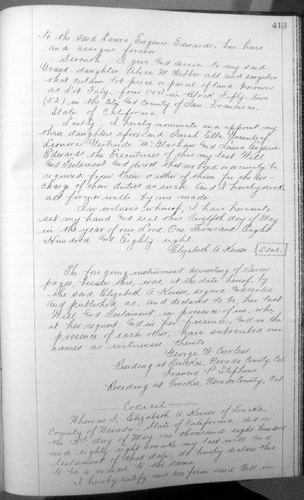 413
to the said Laura Eugene Edwards, her heirs
and assigns forever.
Seventh I give and devise to my said
Grand daughter Alice M. Webber all and singular
that certain lot piece or parcel of land known
as Lot Forty-four now in Block Fifty two
(52) in the City and County of San Francisco,
State of California.
Lastly I hereby nominate and appoint my
three daughters aforesaid Sarah Ella Greenleaf
Leonora Gertrude McGlashan and Laura Eugene
Edwards the Executrices of this my last Will
and Testament and direct that no bond or security be
required from them or either of them for the dis-
charge of their duties as such. And I hereby revoke
all former wills by me made.
In witness whereof, I have hereunto
set my hand and seal this Twelfth day of May
in the year of our Lord One Thousand Eight
Hundred and Eighty-eight.
Elizabeth A. Keiser [Seal]
The foregoing instrument consisting of Seven
pages, besides this, was, at the date hereof, by
the said Elizabeth A. Keiser, signed and sealed
and published as, and declared to be, her last
Will and Testament, in presence of us, who,
at her request, and in her presence, and in the
presence of each other, have subscribed our
names as witnesses thereto
George W. Cowless
Residing at Truckee, Nevada County, Cal.
Francis P. Stephens
Residing at Truckee, Nevada County, Cal
Codicil
Whereas I, Elizabeth A. Keiser of Truckee,
County of Nevada, State of California, did on
the 12th day of May one thousand eight hundred
and eighty-eight make my last will and
testament of that date, do hereby declare this
to be a codicil to the same.
I hereby ratify and confirm said Will in